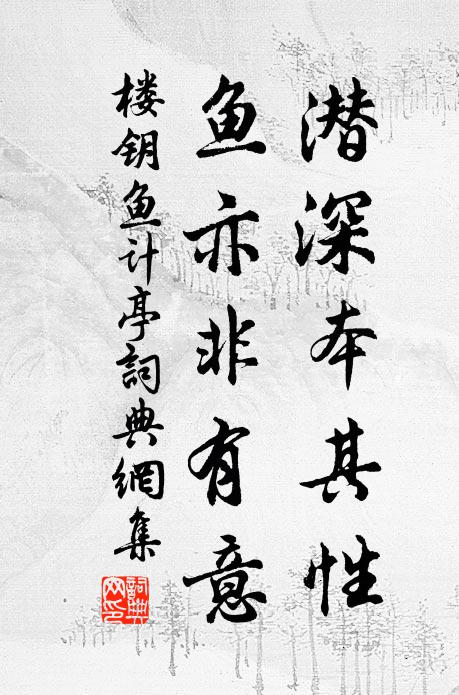 潜深本其性
鱼亦非有意
楼钥鱼计亭詞典網集
詞典